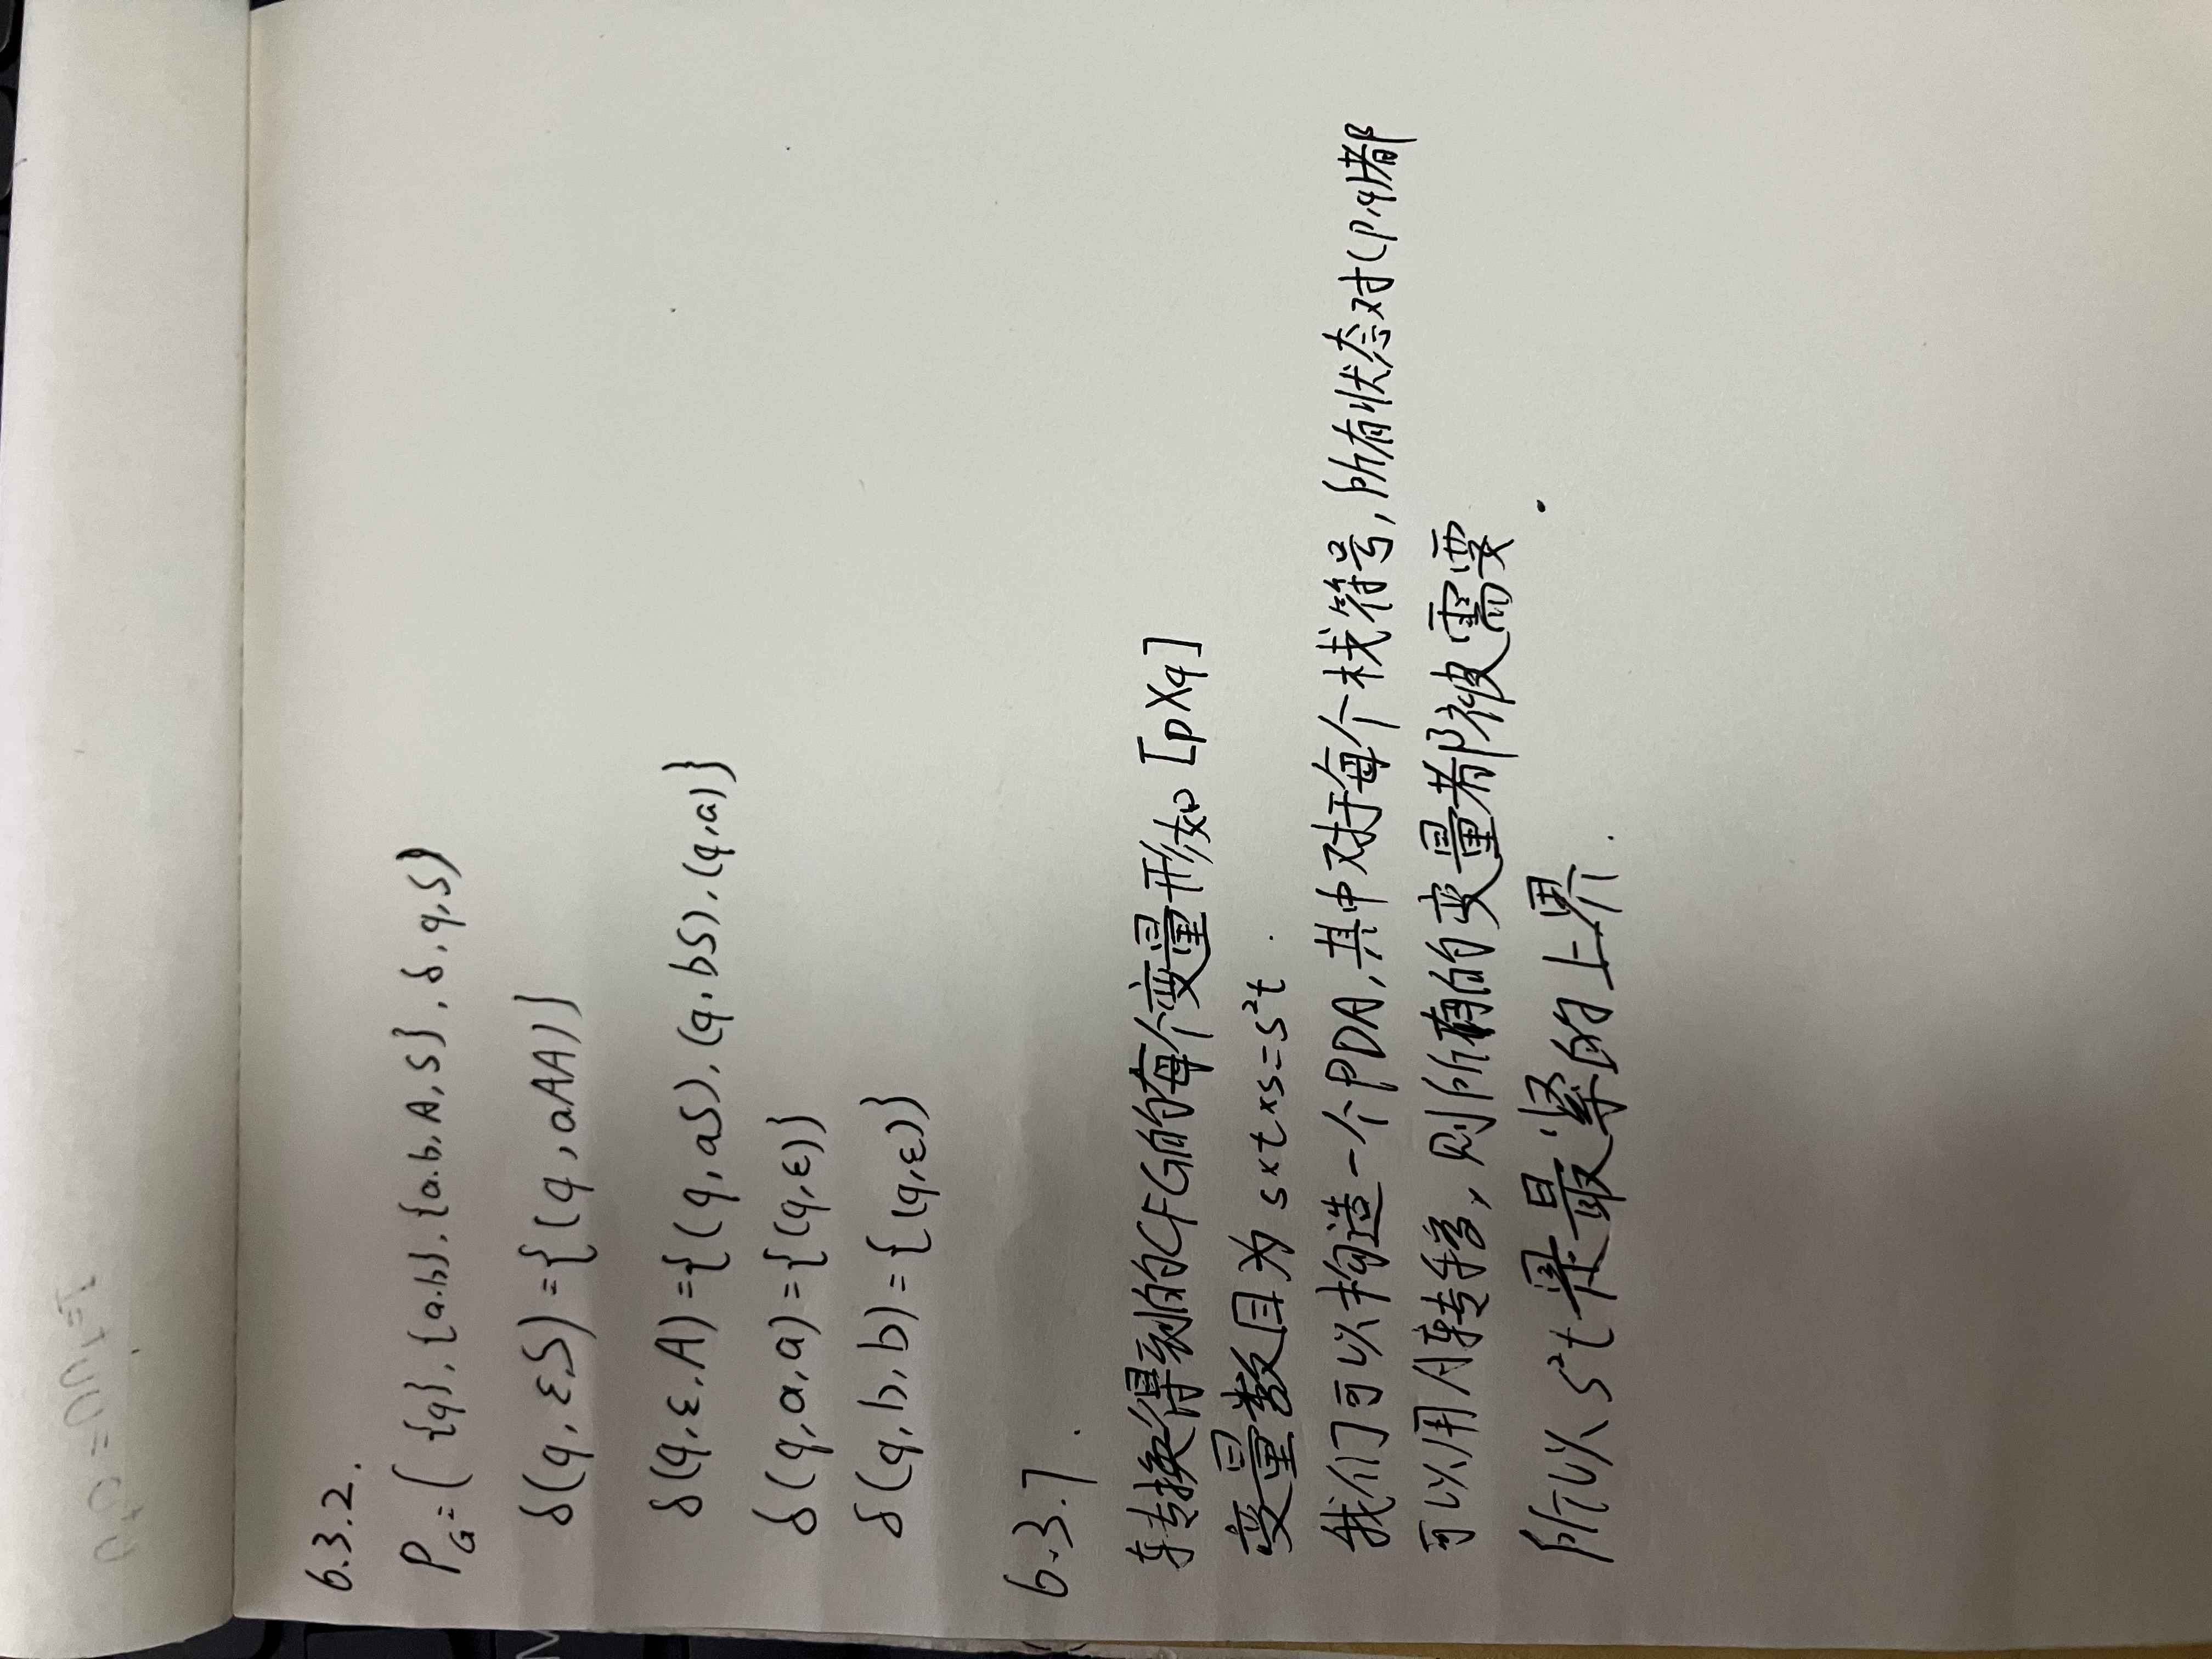 6.3.2.
P_G=( {q}, {a.b}, {a.b, A, S}, δ, q, S)
δ(q, ε,S)={(q, aAA)}
δ(q, ε, A)={(q, aS), (q, bS), (q,a)}
δ(q,a,a)={(q,ε)}
δ(q,b,b)={(q,ε)}
6.3.7.
转换得到的CFG的每个变量形如 [pXq]
变量数目为 s×t×s=s²t.
我们可以构造一个PDA,其中对于每个栈符号,所有状态对(p,q)都
可以用A转移,则所有的变量都被需要.
所以 s²t 是最紧的上界.